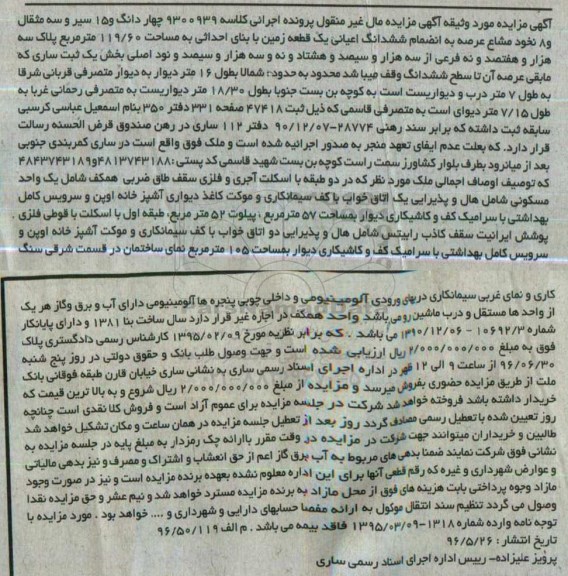 آگهی مزایده مورد وثیقه آگهی مزایده مال غیر منقول پرونده اجرائی کلاسه ۹۳۰۰۹۳۹ چهار دانگ و۱۵ سیر و سه مثقال
و۸ نخود مشاع عرصه به انضمام ششدانگ اعیانی یک قطعه زمین با بنای احداثی به مساحت ۱۱۹/۶۰ مترمربع پلاک سه
هزار و هفتصد و نه فرعی از سه هزار و سیصد و هشتاد و نه و سه هزار و سیصد و نود اصلی بخش یک ثبت ساری که
مابقی عرصه آن تا سطح ششدانگ وقف میبا شد محدود به حدود: شمالا بطول ۱۶ متر دیوار به دیوار متصرفی قربانی شرقا
به طول ۷ متر درب و دیواریست است به کوچه بن بست جنوبا بطول ۱۸/۳۰ متر دیواریست به متصرفی رحمانی غربا به
طول ۷/۱۵ متر دیوای است به متصرفی قاسمی که ذیل ثبت ۴۷۴۱۸ صفحه ۳۳۱ دفتر ۳۵۰ بنام اسمعیل عباسی کرسبی
سابقه ثبت داشته که برابر سند رهنی ۲۸۷۷۴-۹۰/۱۲/۰۷ دفتر ۱۱۲ ساری در رهن صندوق قرض الحسنه رسالت
قرار دارد. که بعلت عدم ایفای تعهد منجر به صدور اجرائیه شده است و ملک فوق واقع است در ساری کمربندی جنوبی
بعد از میانرود بطرف بلوار کشاورز سمت راست کوچه بن بست شهید قاسمی کد پستی :۴۸۱۳۷۴۳۱۸۸و۴۸۴۳۷۴۳۱۸۹
که توصیف اوصاف اجمالی ملک مورد نظر که در دو طبقه با اسکلت آجری و فلزی سقف طاق ضربی همکف شامل یک واحد
مسکونی شامل هال و پذیرایی یک اتاق خواب با کف سیمانکاری و موکت کاغذ دیواری آشپز خانه اوپن و سرویس کامل
بهداشتی با سرامیک کف و کاشیکاری دیوار بمساحت ۵۷ مترمربع ، پیلوت ۵۲ متر مربع، طبقه اول با اسکلت با قوطی فلزی .
پوشش ایرانیت سقف کاذب رابیتس شامل هال و پذیرایی دو اتاق خواب با کف سیمانکاری و موکت آشپز خانه اوپن و
سرویس کامل بهداشتی با سرامیک کف و کاشیکاری دیوار بمساحت ۱۰۵ مترمربع نمای ساختمان در قسمت شرقی سنگ
کاری و نمای غربی سیمانکاری دربهای ورودی آلومینیومی و داخلی چوبی پنجره ها آلومینیومی دارای آب و برق وگاز هر یک
از واحد ها مستقل و درب ماشین رو می باشد واحد همکف در اجاره غیر قرار دارد سال ساخت بنا ۱۳۸۱ و دارای پایانکار
شماره ۱۰۶۹۲/۳ - ۱۳۹۰/۱۲/۰۶ می باشد . که برابر نظریه مورخ ۱۳۹۵/۰۲/۰۹ کارشناس رسمی دادگستری پلاک
فوق به مبلغ ۲/۰۰۰/۰۰۰/۰۰۰ ریال ارزیابی شده است و جهت وصول طلب بانک و حقوق دولتی در روز پنج شنبه
۹۶/۰۶/۳۰ از ساعت ۹ الی ۱۲ ظهر در اداره اجرای اسناد رسمی ساری به نشانی ساری خیابان قارن طبقه فوقانی بانک
ملت از طریق مزایده حضوری بفروش میرسد و مزایده از مبلغ ۲/۰۰۰/۰۰۰/۰۰۰ ریال شروع و به بالا ترین قیمت که
خریدار داشته باشد فروخته خواهد شد شرکت در جلسه مزایده برای عموم آزاد است و فروش کلا نقدی است چنانچه
روز تعیین شده با تعطیل رسمی مصادف گردد روز بعد از تعطیل جلسه مزایده در همان ساعت و مکان تشکیل خواهد شد
طالبین و خریداران میتوانند جهت شرکت در مزایده در وقت مقرر باارائه چک رمزدار به مبلغ پایه در جلسه مزایده به
نشانی فوق شرکت نمایند ضمنا بدهی های مربوط به آب برق گاز اعم از حق انعشاب و اشتراک و مصرف و نیز بدهی مالیاتی
و عوارض شهرداری و غیره که رقم قطعی آنها برای این اداره معلوم نشده بعهده برنده مزایده است و نیز در صورت وجود
مازاد وجوه پرداختی بابت هزینه های فوق از محل مازاد به برنده مزایده مسترد خواهد شد و نیم عشر و حق مزایده نقدا
وصول می گردد تنظیم سند انتقال موکول به ارائه مفصا حسابهای دارایی و شهرداری و .... خواهد بود . مورد مزایده با
توجه نامه وارده شماره ۱۳۱۸-۱۳۹۵/۰۳/۰۹ فاقد بیمه می باشد . م الف ۹۶/۵۰/۱۱۹
تاریخ انتشار : ۹۶/۵/۲۶
پرویز علیزاده- رییس اداره اجرای اسناد رسمی ساری